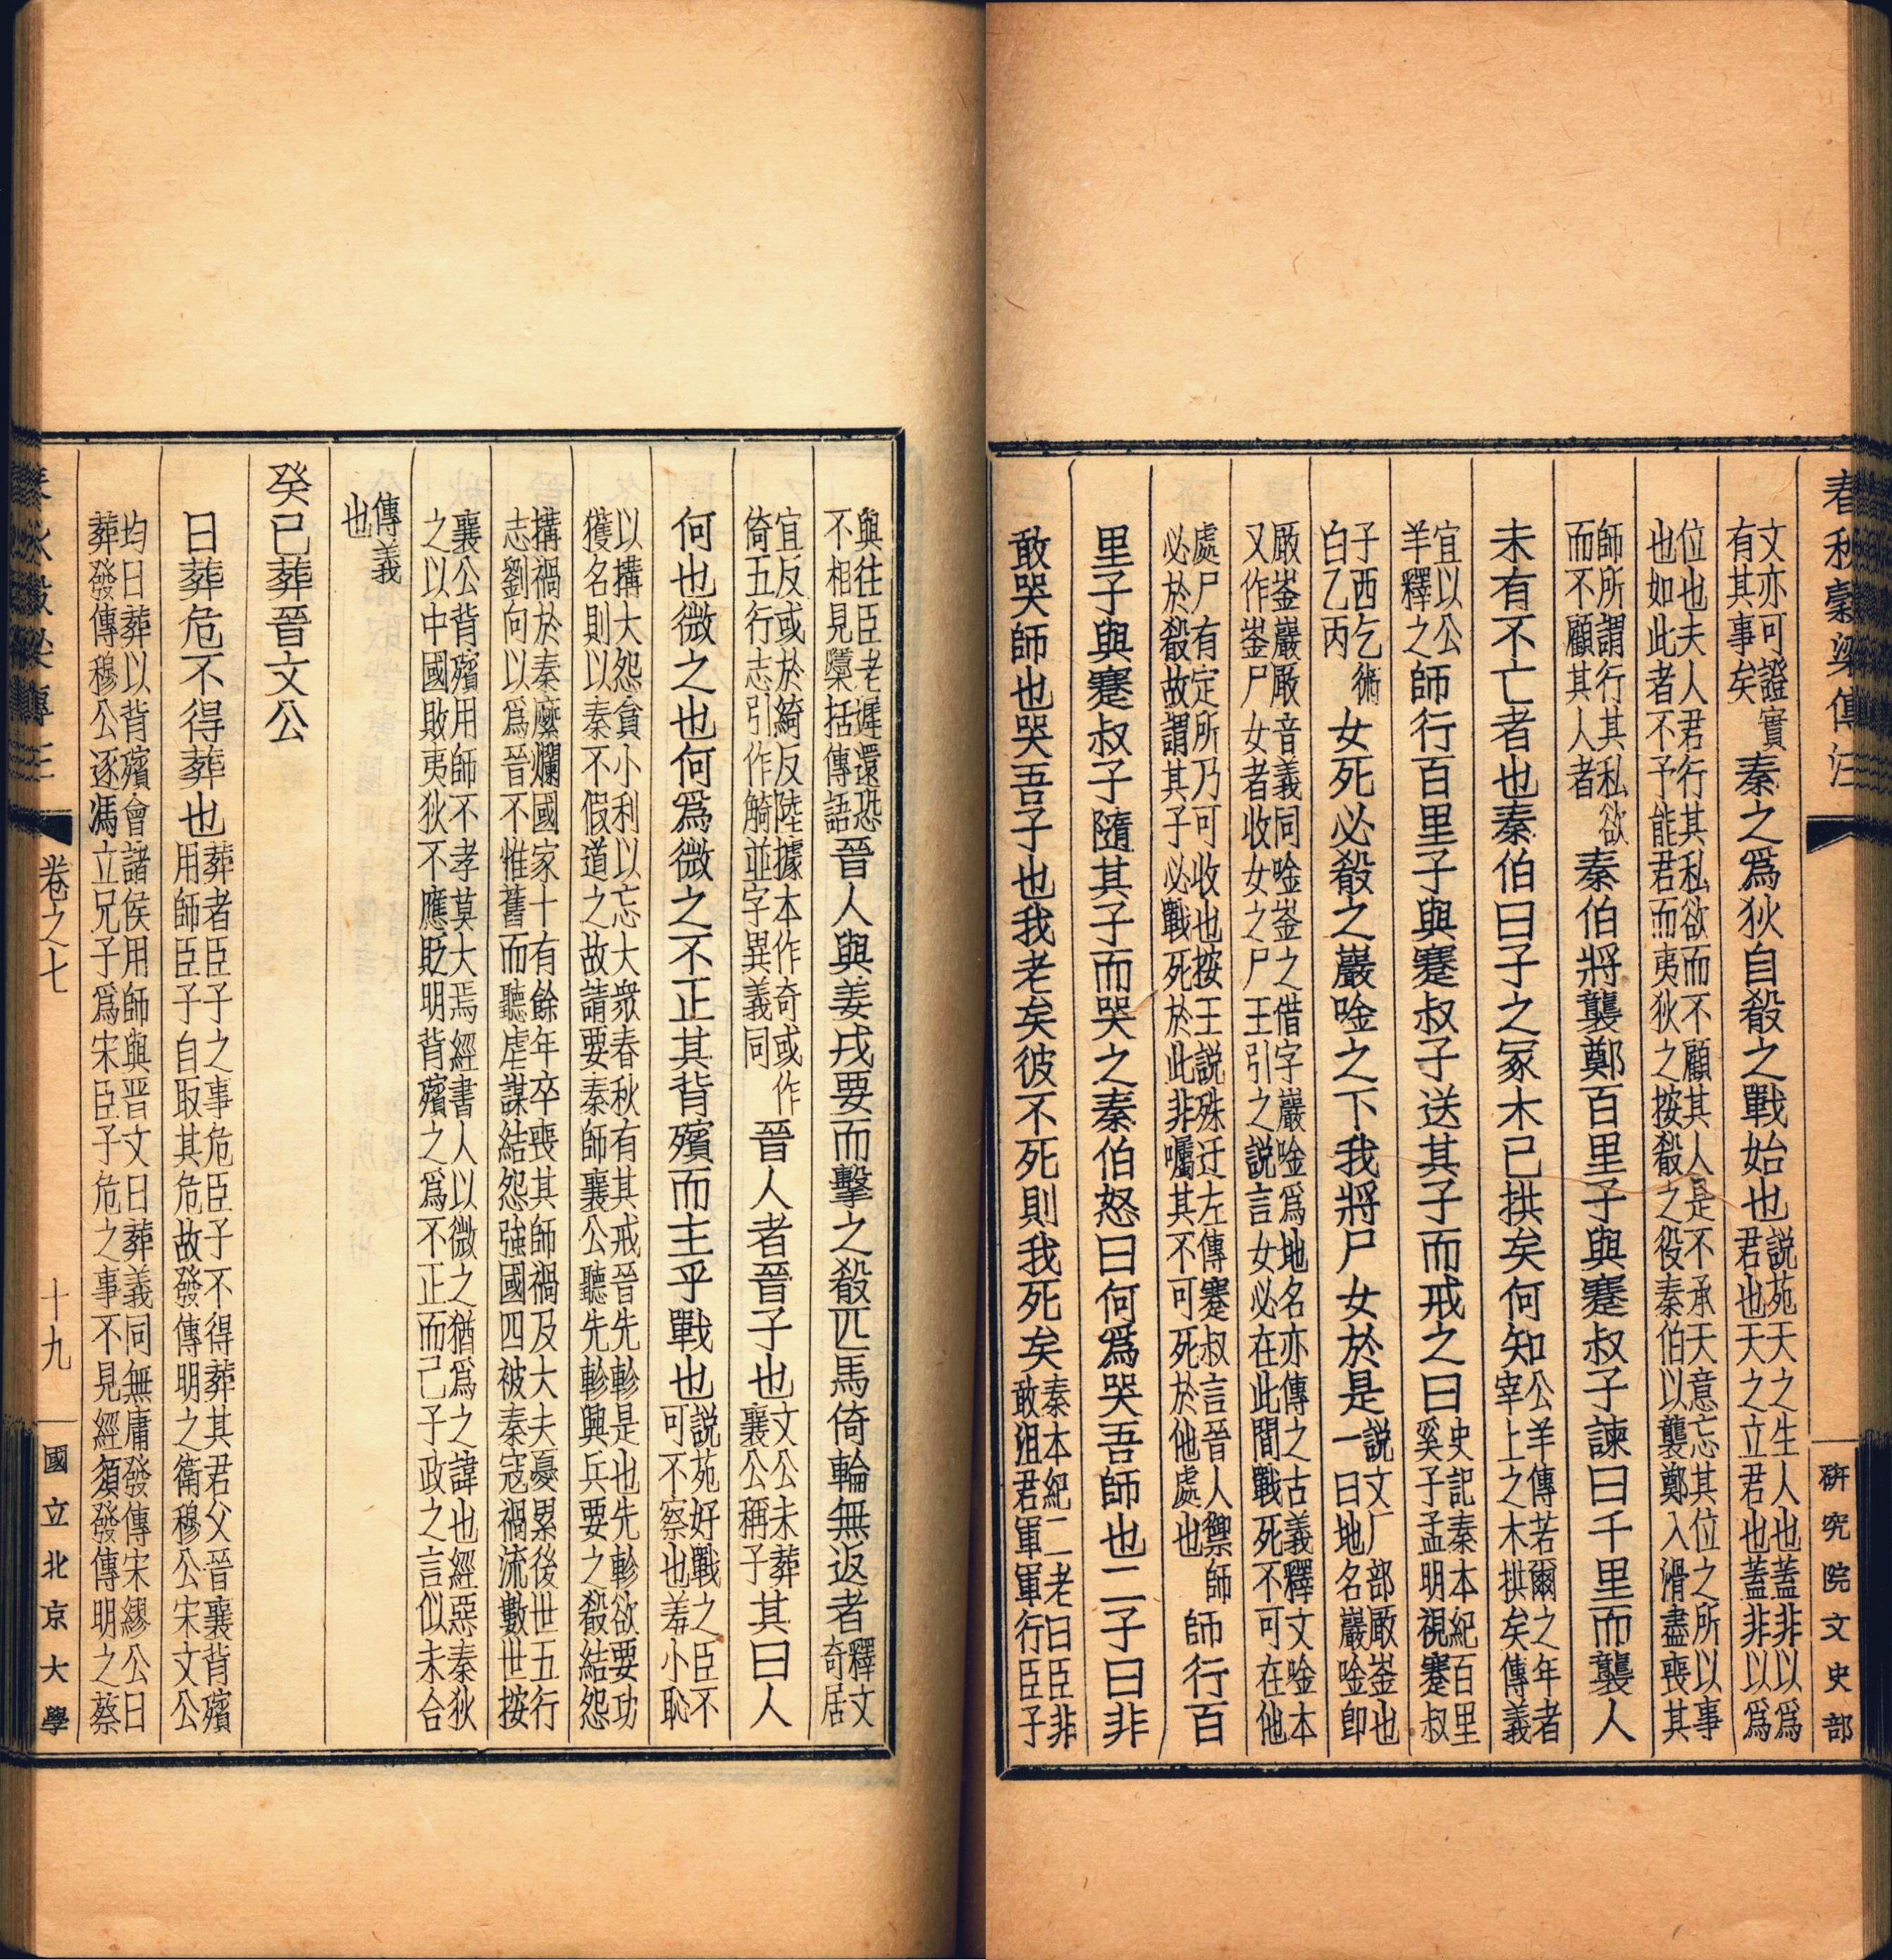 春秋穀梁傳注
研究院文史部
文亦可證實有其事矣秦之爲狄自殽之戰始也說苑天之生人也蓋非以爲君也天之立君也蓋非以爲
位也夫人君行其私欲而不顧其人是不承天意忘其位之所以事也如此者不予能君而夷狄之按殽之役秦伯以襲鄭入滑盡喪其
師所謂行其私欲而不顧其人者秦伯將襲鄭百里子與蹇叔子諫曰千里而襲人
未有不亡者也秦伯曰子之冢木已拱矣何知公羊傳若爾之年者宰上之木拱矣傳義
宜以公羊釋之師行百里子與蹇叔子送其子而戒之曰史記秦本紀百里奚子孟明視蹇叔
子西乞術白乙丙女死必殽之巖唫之下我將尸女於是說文厂部厰崟也一曰地名巖唫卽
厰崟巖厰音義同唫崟之借字巖唫爲地名亦傳之古義釋文唫本又作崟尸女者收女之尸王引之說言女必在此間戰死不可在他
處尸有定所乃可收也按王說殊迂左傳蹇叔言晉人禦師必於殽故謂其子必戰死於此非囑其不可死於他處也師行百
里子與蹇叔子隨其子而哭之秦伯怒曰何爲哭吾師也二子曰非
敢哭師也哭吾子也我老矣彼不死則我死矣秦本紀二老曰臣非敢沮君軍軍行臣子
與往臣老遲還恐不相見櫽括傳語晉人與姜戎要而擊之殽匹馬倚輪無返者釋文奇居
宜反或於綺反陸據本作奇或作倚五行志引作觭並字異義同晉人者晉子也文公未葬襄公稱子其曰人
何也微之也何爲微之不正其背殯而主乎戰也說苑好戰之臣不可不察也羞小恥
以搆大怨貪小利以忘大衆春秋有其戒晉先軫是也先軫欲要功獲名則以秦不假道之故請要秦師襄公聽先軫興兵要之殽結怨
搆禍於秦麋爛國家十有餘年卒喪其師禍及大夫憂累後世五行志劉向以爲晉不惟舊而聽虐謀結怨強國四被秦寇禍流數世按
襄公背殯用師不孝莫大焉經書人以微之猶爲之諱也經惡秦狄之以中國敗夷狄不應貶明背殯之爲不正而己子政之言似未合
傳義也
癸巳葬晉文公
日葬危不得葬也葬者臣子之事危臣子不得葬其君父晉襄背殯用師臣子自取其危故發傳明之衛穆公宋文公
均日葬以背殯會諸侯用師與晋文日葬義同無庸發傳宋繆公日葬發傳穆公逐馮立兄子爲宋臣子危之事不見經須發傳明之蔡
卷之七
十九
國立北京大學